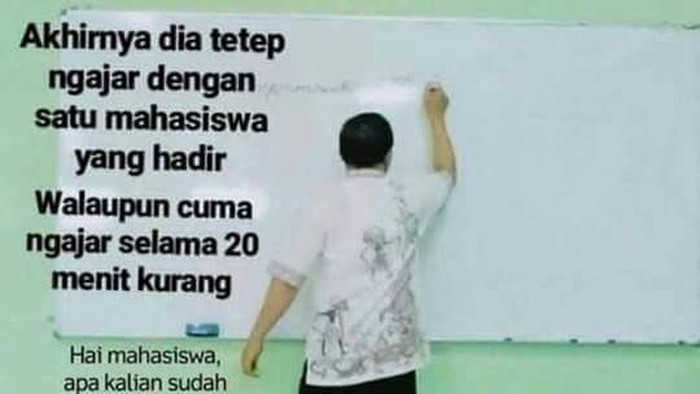 Akhirnya dia tetep
ngajar dengan
satu mahasiswa
yang hadir
Walaupun cuma
ngajar selama 20
menit kurang
Hai mahasiswa,
apa kalian sudah